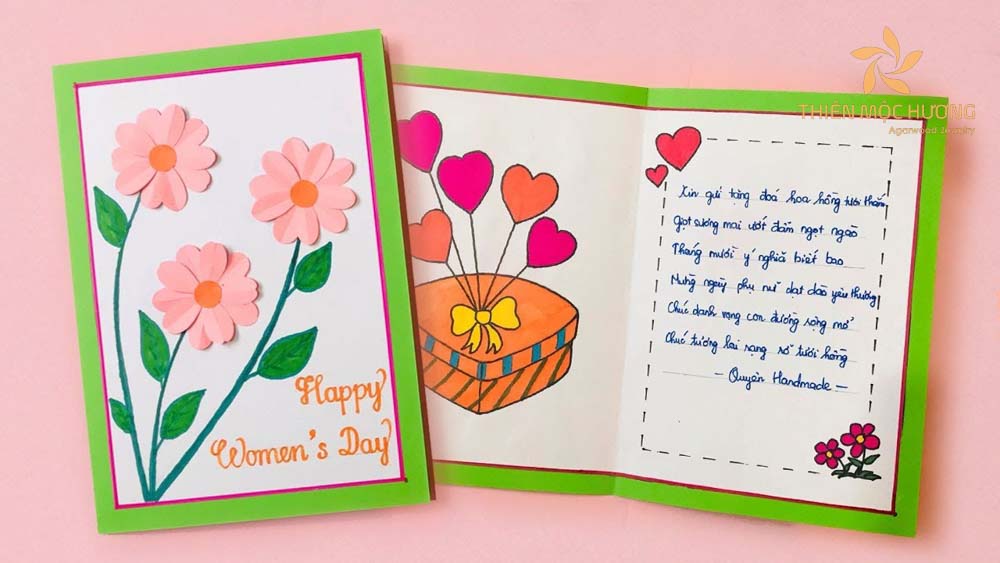 Happy
Women's Day
THIÊN MỘC HƯƠNG
Agarwood Jewelry
Xin gửi tặng đoá hoa hồng tươi thắm
Giọt sương mai ướt đẫm ngọt ngào
Tháng mười ý nghĩa biết bao
Mừng ngày phụ nữ dạt dào yêu thương
Chúc danh vọng con đường rộng mở
Chúc tương lai rạng rỡ tươi hồng
- Quyên Handmade -